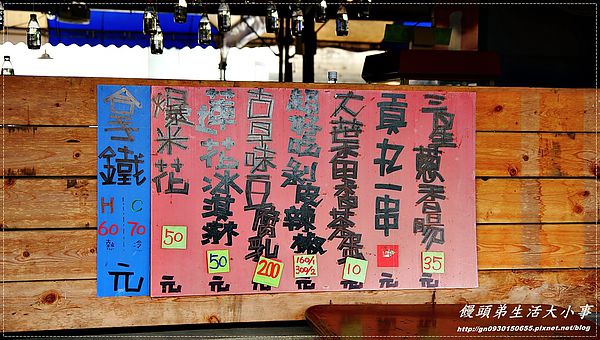 三星蔥香腸 35 元
貢丸一串 元
大 茶蛋 10 元
剝皮辣椒 160/1 300/2 元
古早味豆腐乳 200 元
蓮花冰淇淋 50 元
爆米花 50 元
拿鐵
H C
60 70
熱 冷
元
饅頭弟生活大小事
http://gn0930150655.pixnet.net/blog